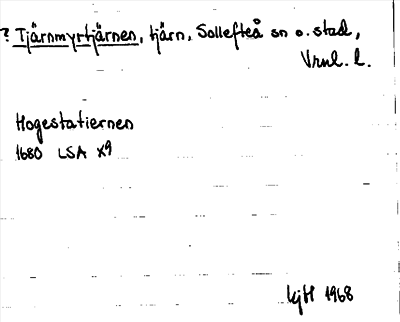 ? Tjärnmyrtjärnen, tjärn, Sollefteå sn o. stad,
Vrml. l.
Hogestatiernen
1680 LSA X9
KjH 1968